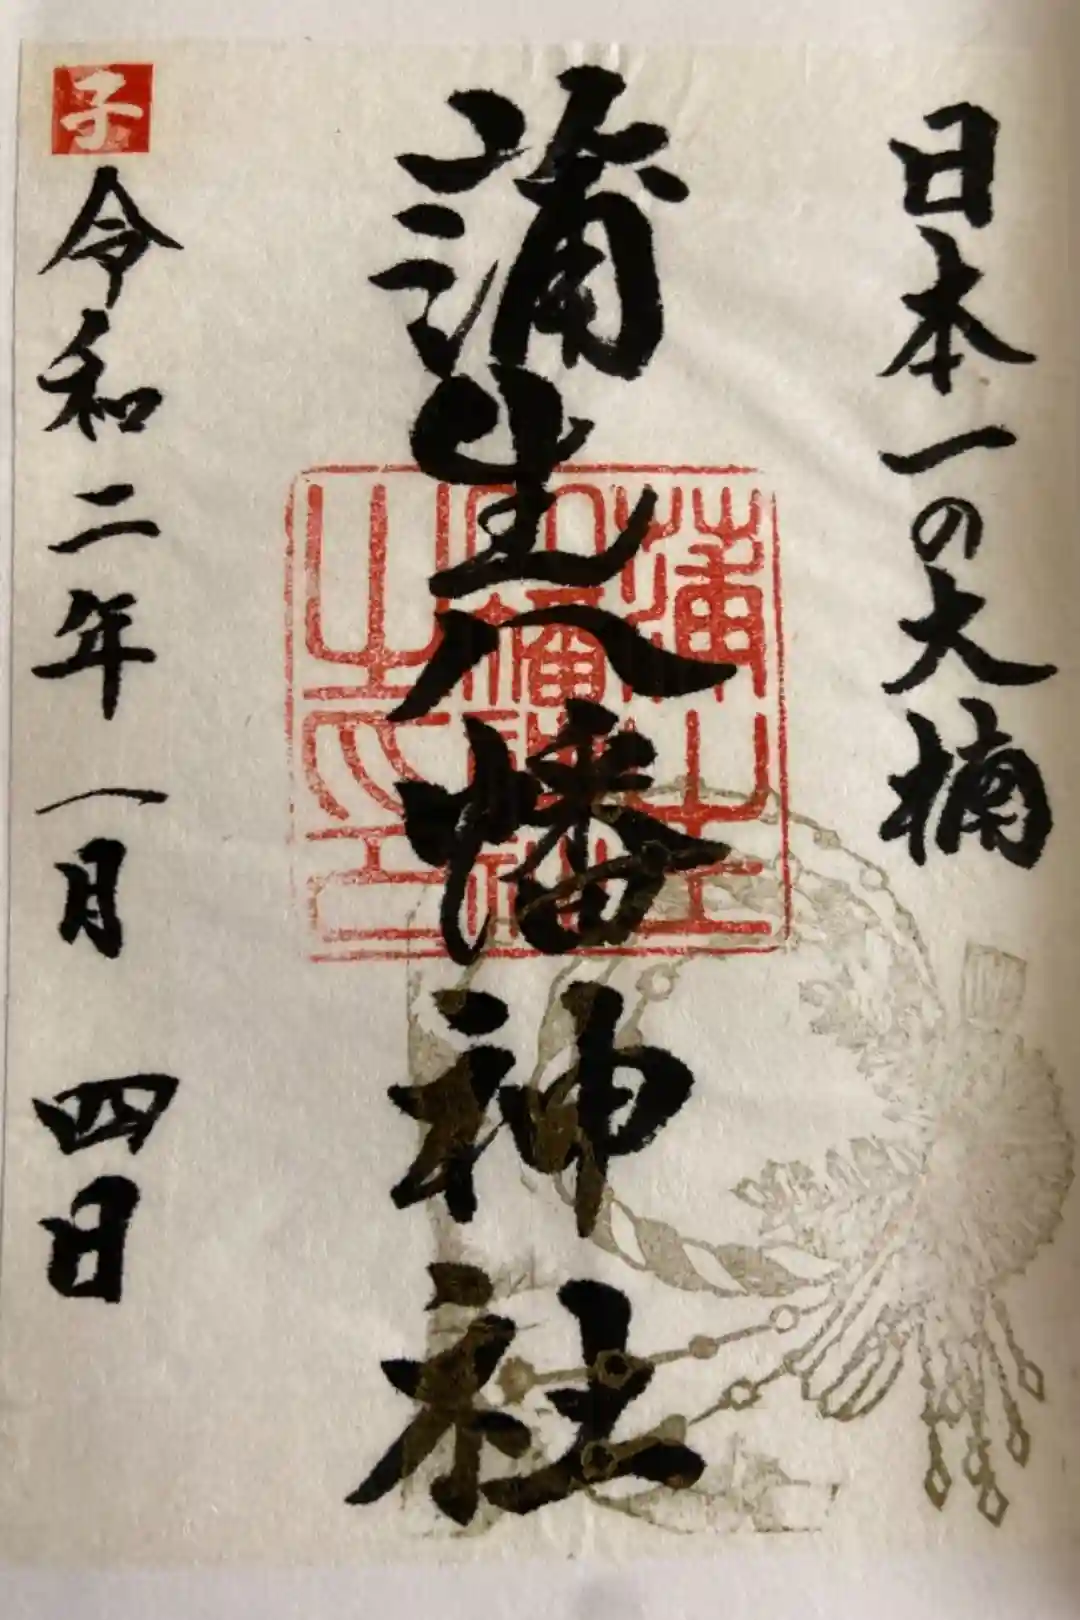 日本一の大楠
蒲生八幡神社
蒲生八幡神社之印
子
令和二年一月 四日